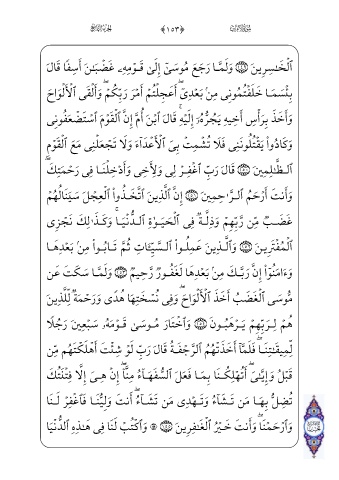 ٱلۡخَٰسِرِينَ ١٤٩ وَلَمَّا رَجَعَ مُوسَىٰٓ إِلَىٰ قَوۡمِهِۦ غَضۡبَٰنَ أَسِفٗا قَالَ
بِئۡسَمَا خَلَفۡتُمُونِي مِنۢ بَعۡدِيٓۖ أَعَجِلۡتُمۡ أَمۡرَ رَبِّكُمۡۖ وَأَلۡقَى ٱلۡأَلۡوَاحَ
وَأَخَذَ بِرَأۡسِ أَخِيهِ يَجُرُّهُۥٓ إِلَيۡهِۚ قَالَ ٱبۡنَ أُمَّ إِنَّ ٱلۡقَوۡمَ ٱسۡتَضۡعَفُونِي
وَكَادُواْ يَقۡتُلُونَنِي فَلَا تُشۡمِتۡ بِيَ ٱلۡأَعۡدَآءَ وَلَا تَجۡعَلۡنِي مَعَ ٱلۡقَوۡمِ
ٱلظَّٰلِمِينَ ١٥٠ قَالَ رَبِّ ٱغۡفِرۡ لِي وَلِأَخِي وَأَدۡخِلۡنَا فِي رَحۡمَتِكَۖ
وَأَنتَ أَرۡحَمُ ٱلرَّٰحِمِينَ ١٥١ إِنَّ ٱلَّذِينَ ٱتَّخَذُواْ ٱلۡعِجۡلَ سَيَنَالُهُمۡ
غَضَبٞ مِّن رَّبِّهِمۡ وَذِلَّةٞ فِي ٱلۡحَيَوٰةِ ٱلدُّنۡيَاۚ وَكَذَٰلِكَ نَجۡزِي
ٱلۡمُفۡتَرِينَ ١٥٢ وَٱلَّذِينَ عَمِلُواْ ٱلسَّيِّـَٔاتِ ثُمَّ تَابُواْ مِنۢ بَعۡدِهَا
وَءَامَنُوٓاْ إِنَّ رَبَّكَ مِنۢ بَعۡدِهَا لَغَفُورٞ رَّحِيمٞ ١٥٣ وَلَمَّا سَكَتَ عَن
مُّوسَى ٱلۡغَضَبُ أَخَذَ ٱلۡأَلۡوَاحَۖ وَفِي نُسۡخَتِهَا هُدٗى وَرَحۡمَةٞ لِّلَّذِينَ
هُمۡ لِرَبِّهِمۡ يَرۡهَبُونَ ١٥٤ وَٱخۡتَارَ مُوسَىٰ قَوۡمَهُۥ سَبۡعِينَ رَجُلٗا
لِّمِيقَٰتِنَاۖ فَلَمَّآ أَخَذَتۡهُمُ ٱلرَّجۡفَةُ قَالَ رَبِّ لَوۡ شِئۡتَ أَهۡلَكۡتَهُم مِّن
قَبۡلُ وَإِيَّٰيَۖ أَتُهۡلِكُنَا بِمَا فَعَلَ ٱلسُّفَهَآءُ مِنَّآۖ إِنۡ هِيَ إِلَّا فِتۡنَتُكَ
تُضِلُّ بِهَا مَن تَشَآءُ وَتَهۡدِي مَن تَشَآءُۖ أَنتَ وَلِيُّنَا فَٱغۡفِرۡ لَنَا
وَٱرۡحَمۡنَاۖ وَأَنتَ خَيۡرُ ٱلۡغَٰفِرِينَ ١٥٥ ۞ وَٱكۡتُبۡ لَنَا فِي هَٰذِهِ ٱلدُّنۡيَا